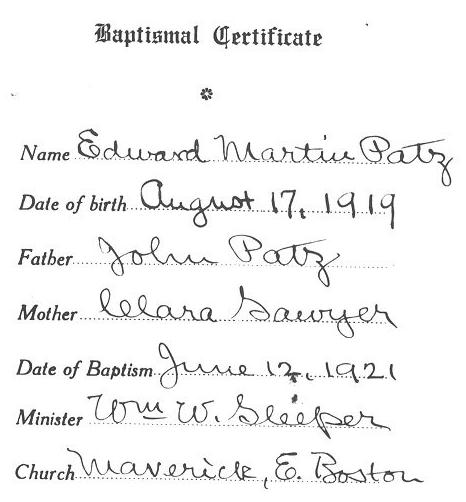 Baptismal Certificate
Name Edward Martin Patz
Date of birth August 17, 1919
Father John Patz
Mother Clara Sawyer
Date of Baptism June 12, 1921
Minister Wm W. Sleeper
Church Maverick, E. Boston